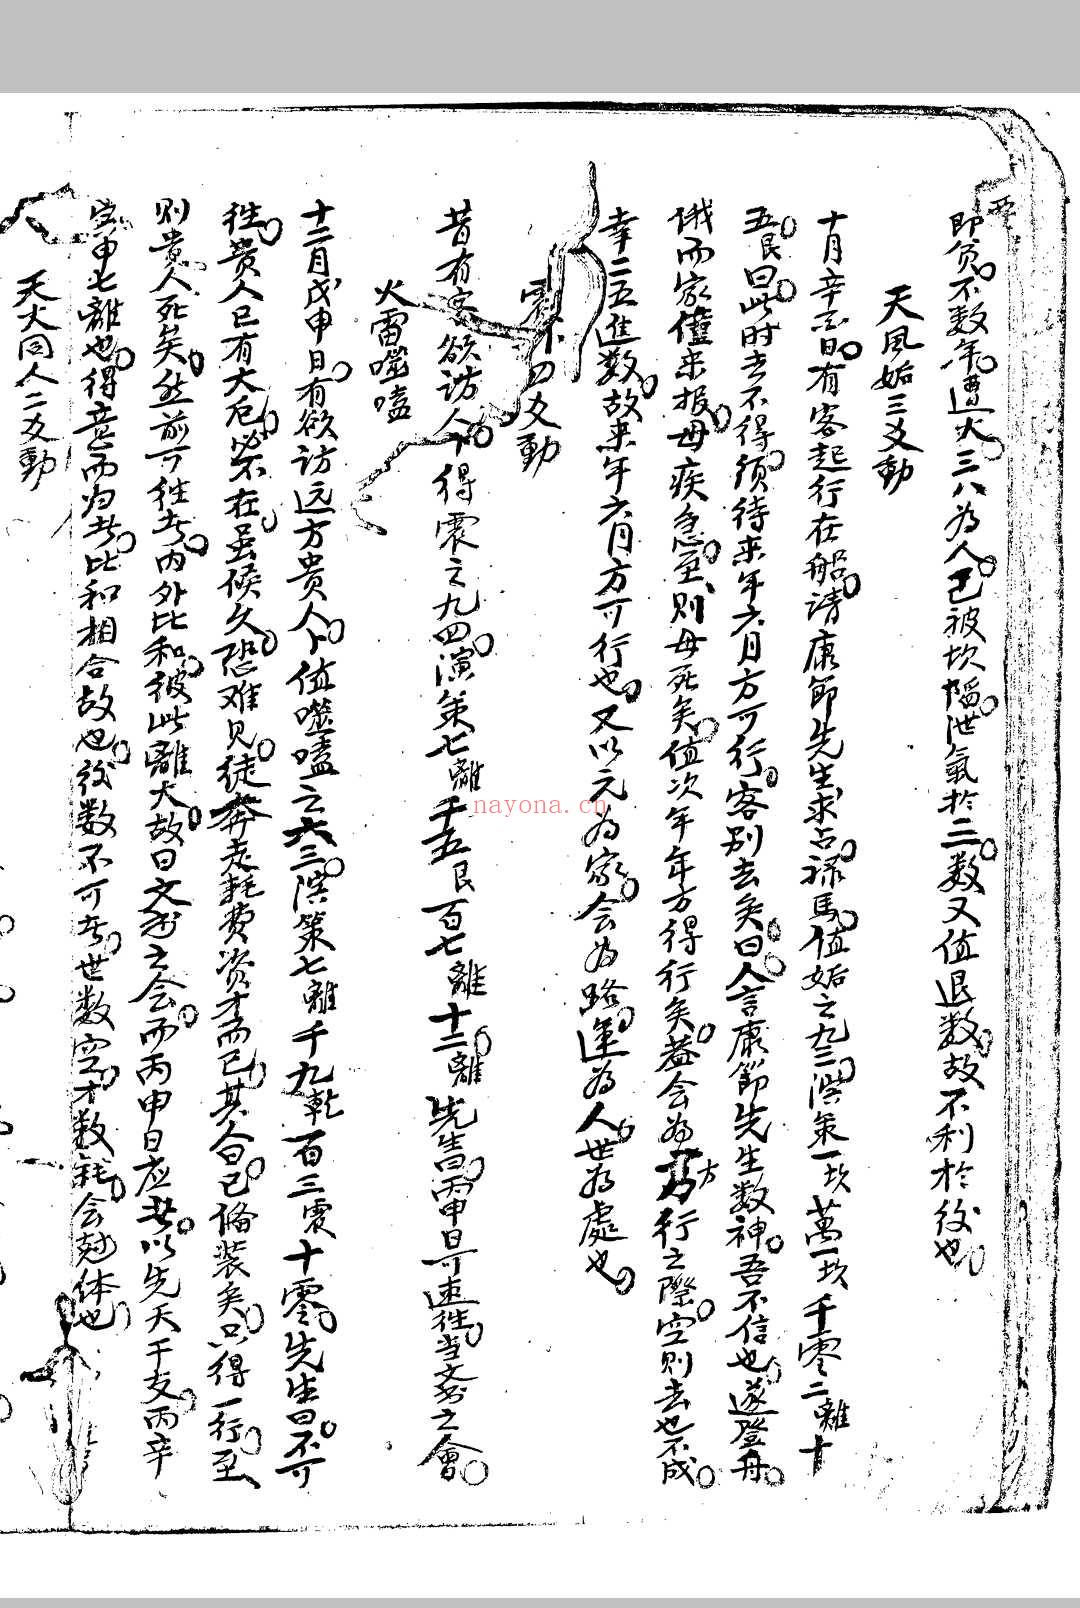 即贫不数年遭火三八為人已被坎陷泄氣於二数又值退数故不利於後也
天風姤三爻動
十月辛丑日有客起行在船请康節先生求占禄馬值姤之九三演策一坎萬一坎千零二離十
五艮曰此时去不得须待来年六月方可行客别去矣曰人言康節先生数神吾不信也遂登舟
俄而家僮来报母疾急至则母死矣值次年年方得行矣盖会為方行之際空则去也不成
幸二五進数故来年六月方可行也又以元為家会為路運為人世為處也
震卜四爻動
昔有客欲访人卜得震之九四演策七離千五艮百七離十二離先生曰丙申日可速往当文书之會
火雷噬嗑
十二月戊申日有欲访远方贵人卜值噬嗑之六三演策七離千九乾百三震十零先生曰不可
往贵人已有大厄必不在虽候久恐难见徒奔走耗费资才而已其人曰已俻装矣只得一行至
则贵人死矣然前可往者内外比和彼此離火故曰文书之会而丙申日应者以先天干支丙辛
寅申七離也得意而归者比和相合故也後数不可者世数空才数耗会尅体也
天火同人二爻動
nayona.cn